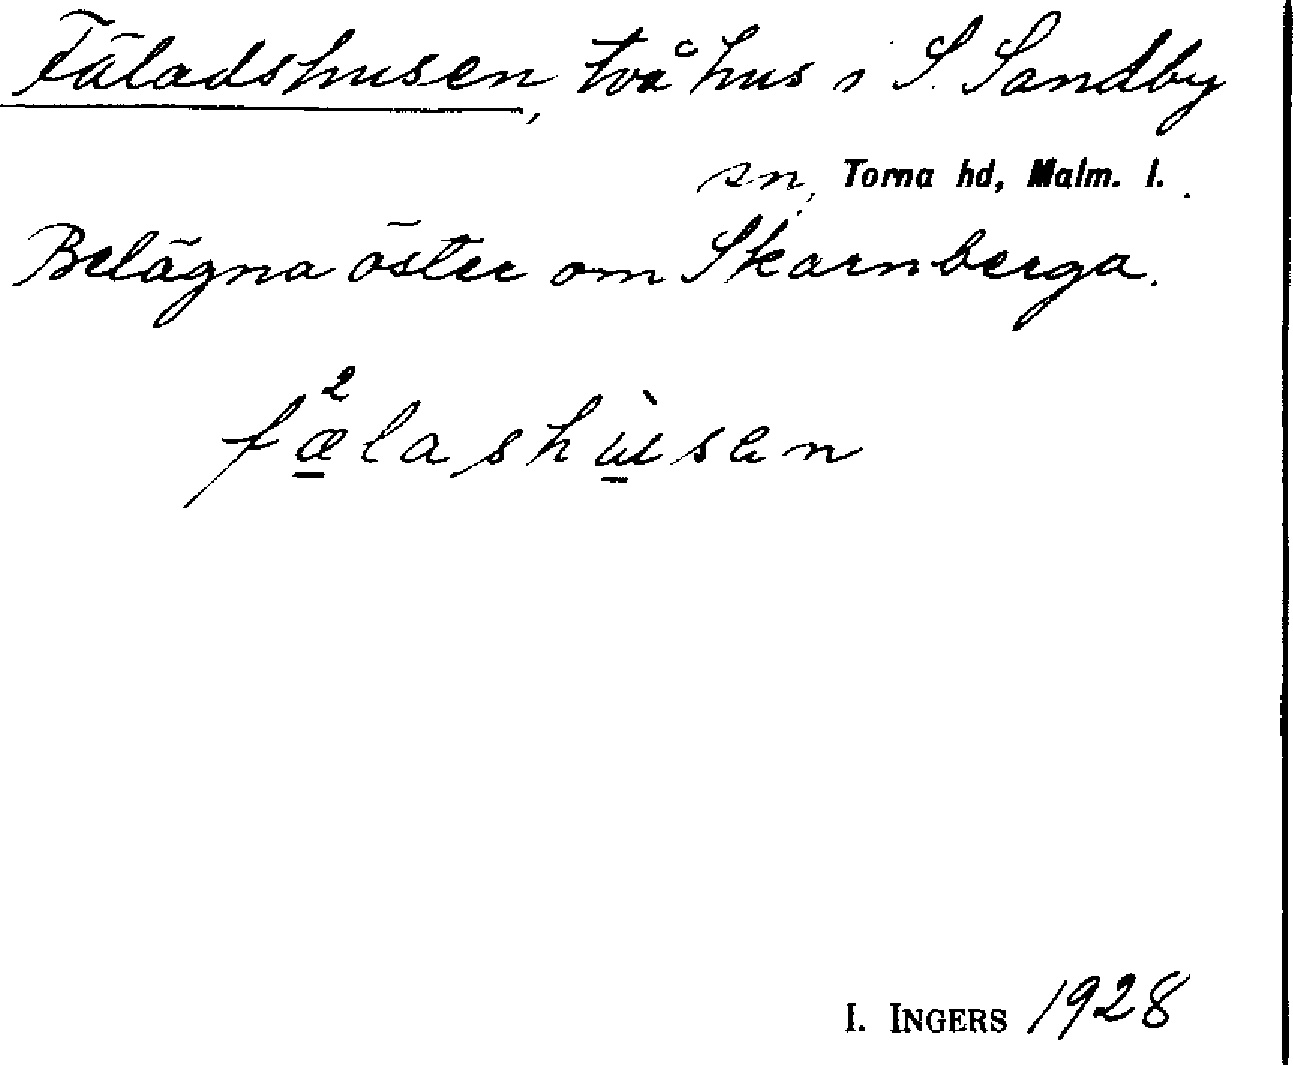 Fäladshusen, två hus i S. Sandby
sn, Torna hd, Malm. l.
Belägna öster om Skarnberga.
2
fælashùsen
I. INGERS 1928